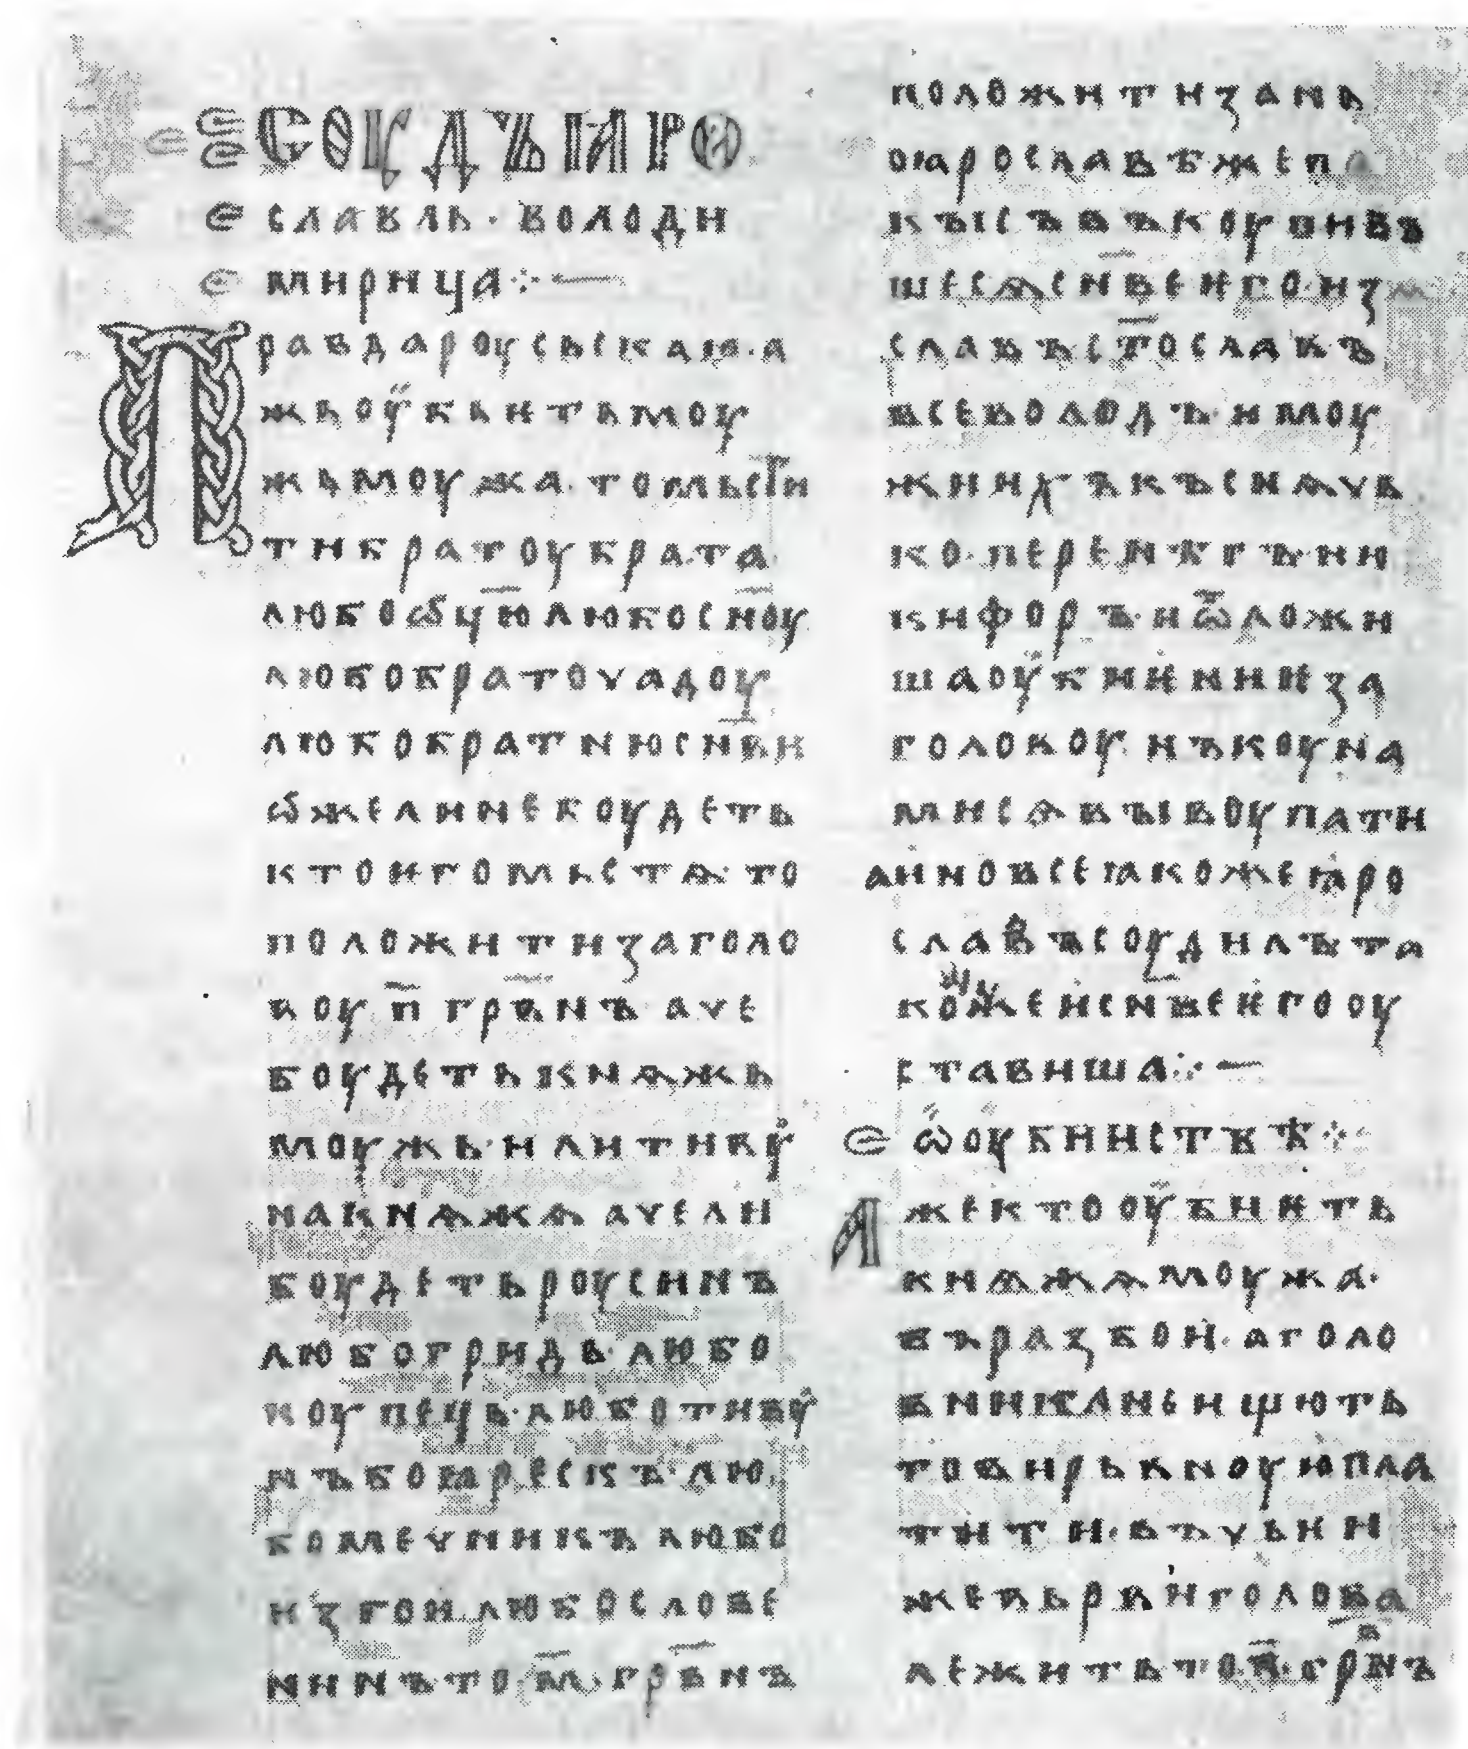 СОУДЪ ꙖРО
СЛАВЛЬ · ВОЛОДИ
МИРИЦА ⁘ —
Правда роусьскаꙗ · а
жь оубиѥть моу
жь моужа · то мьсти
ти братоу брата
любо ѡц҃ю любо сн҃оу
любо братоучадоу
любо братню сн҃ви
ѡже ли не боудеть
кто ѥго мьстѧ · то
положити за голо
воу п҃ грв҃нъ аче
боудеть кнѧжь
моужь · или тивоу
на кнѧжѧ аче ли
боудеть роусинъ
любо гридь · любо
коупець · любо тивоу
нъ боꙗрескъ · лю
бо мечникъ любо
изгои · любо слове
нинъ то м҃ · грв҃нъ
положити за нь
по ꙗрославѣ же па
кы съвъкоупивъ
шесѧ сн҃ве ѥго · изѧ
славъ ст҃ославъ
всеволодъ · и моу
жи ихъ къснѧчь
ко · перенѣгъ · ни
кифоръ · и ѿложи
ша оубиѥниѥ за
голову · нъ коуна
ми сѧ выкоупати
а ино все ꙗкоже ꙗро
славъ соудилъ та
коже и сн҃ве ѥго оу
ставиша ⁘ —
ѡ оубииствѣ ⁘
Аже кто оубиѥть
кнѧжѧ моужа ·
въ разбои · а голо
вникꙗ не ищють
то вирьвноую пла
тити · въ чьѥи
же вьрви голова
лежить то п҃ · грв҃нъ